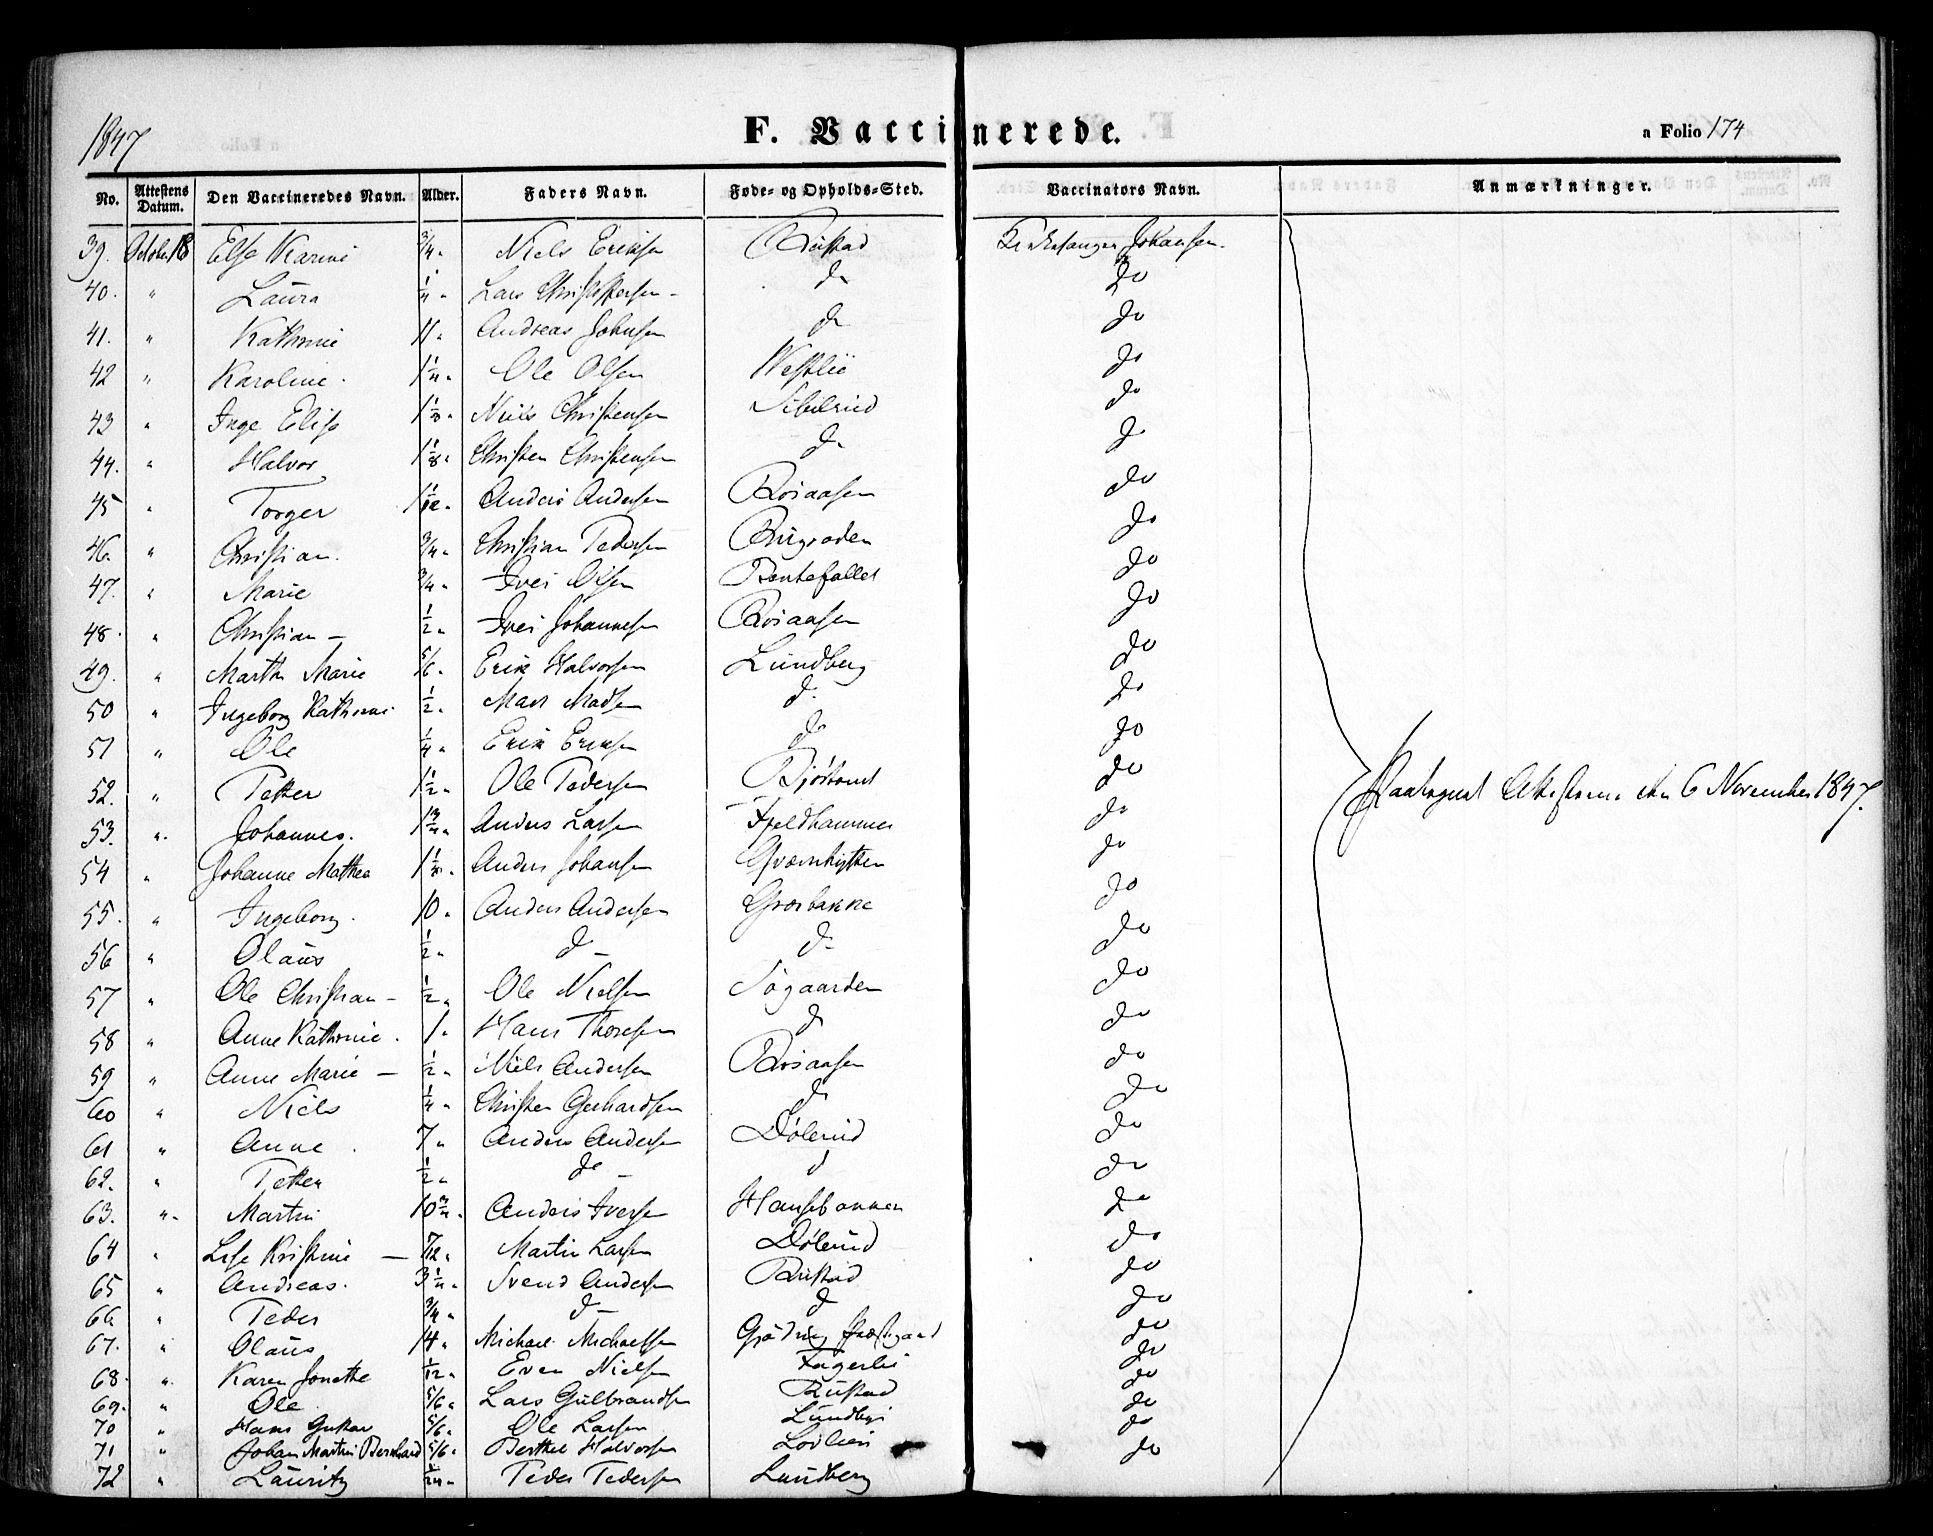 1847
F. Vaccinerede.
a Folio 174
No. Attestens Datum. Den Vaccineredes Navn. Alder. Faders Navn. Føde- og Opholds-Sted. Vaccinators Navn. Anmærkninger.
39. October 18 Else Karine 3/4 „ Niels Eriksen Rustad Kirkesanger Johansen.
40. „ Laura 1/4 „ Lars Christophersen - do do
41. „ Kathrine 11 „ Andreas Johnsen do do
42 „ Karoline. 1 1/4 „ Ole Olsen Westlie do
43 „ Inge Elise Niels Christensen Sibilrud do
44. „ Halvor 1 1/8 „ Christen Christensen do do
45 „ Torger 1 1/12 „ Anders Andersen Roiaasen do
46. „ Christian. 3/4 „ Christian Pedersen do
47. „ Marie 3/4 „ Iver Olsen do
48. „ Christian - 1/2 „ Iver Johannesen Roiaasen do
49. „ Marthe Marie 5/6 „ Erik Halvorsen Lundberg do
50 „ Ingeborg Kathrine 1/2 „ Mads Madsen do do
51 „ Ole 1/4 „ Erik Eriksen do do
52. „ Petter 1 1/2 „ Ole Pedersen do
53. „ Johannes. 1 3/4 „ Anders Larsen Fjeldhammer do
54 „ Johanne Mathea Anders Johansen Qværnhytten do
55. „ Ingeborg. 10 „ Anders Andersen Græsbakke do
56 „ Olaus 1/2 „ do - do do
57 „ Ole Christian - 1/2 „ Ole Nielsen Søgaarden do
58 „ Anne Kathrine. 1 „ Hans Thoresen do do
59 „ Anne Marie - 1/2 „ Niels Andersen Roiaasen do
60 „ Niels 1/4 „ Christen Gerhardsen do do
61 „ Anne. 7 „ Anders Andersen Dølerud do
62. „ Petter 1/2 „ do - do do
63. „ Martin 10 3/4 „ Anders Iversen Hansebakken do
64 „ Lise Kristine - 7/12 „ Martin Larsen Dølerud do
65 „ Andreas. 3 1/4 „ Svend Andersen Rustad do
66 „ Peder 3/4 „ do - do do
67. „ Olaus 14 „ Michael Michaelsen do
68. „ Karen Jonette 1/12 „ Even Nielsen Fagerlie do
69. „ Ole 5/6 „ Lars Gulbrandsen Rustad do
70 „ Hans Gustav 5/6 „ Ole Larsen Lundberg do
71 „ Johan Martin Bernhard 5/6 „ Berthel Halvorsen Lovlien do
72 „ Lauritz 1/24 „ Peder Pedersen Lundberg
Paategnet Attesterne den 6 November 1847.